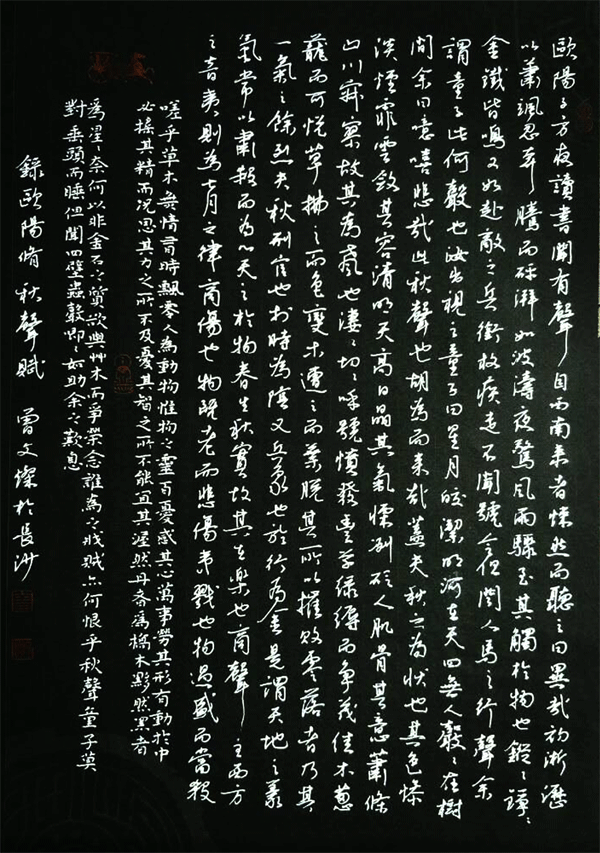 歐陽子方夜讀書聞有聲自西南來者悚然而聽之曰異哉初淅瀝
以蕭颯忽奔騰而砰湃如波濤夜驚風雨驟至其觸於物也鏦鏦錚錚
金鐵皆鳴又如赴敵之兵銜枚疾走不聞號令但聞人馬之行聲余
謂童子此何聲也汝出視之童子曰星月皎潔明河在天四無人聲聲在樹
間余曰噫嘻悲哉此秋聲也胡為而來哉蓋夫秋之為狀也其色慘
淡煙霏雲斂其容清明天高日晶其氣慄冽砭人肌骨其意蕭條
山川寂寥故其為聲也淒淒切切呼號憤發豐草綠縟而爭茂佳木蔥
蘢而可悅草拂之而色變木遭之而葉脫其所以摧敗零落者乃其
一氣之餘烈夫秋刑官也於時為陰又兵象也於行為金是謂天地之義
氣常以肅殺而為心天之於物春生秋實故其在樂也商聲主西方
之音夷則為七月之律商傷也物既老而悲傷夷戮也物過盛而當殺
嗟乎草木無情有時飄零人為動物惟物之靈百憂感其心萬事勞其形有動於中
必搖其精而況思其力之所不及憂其智之所不能宜其渥然丹者為槁木黟然黑者
為星星奈何以非金石之質欲與草木而爭榮念誰為之戕賊亦何恨乎秋聲童子莫
對垂頭而睡但聞四壁蟲聲唧唧如助余之歎息
錄歐陽脩秋聲賦 曾文燦於長沙